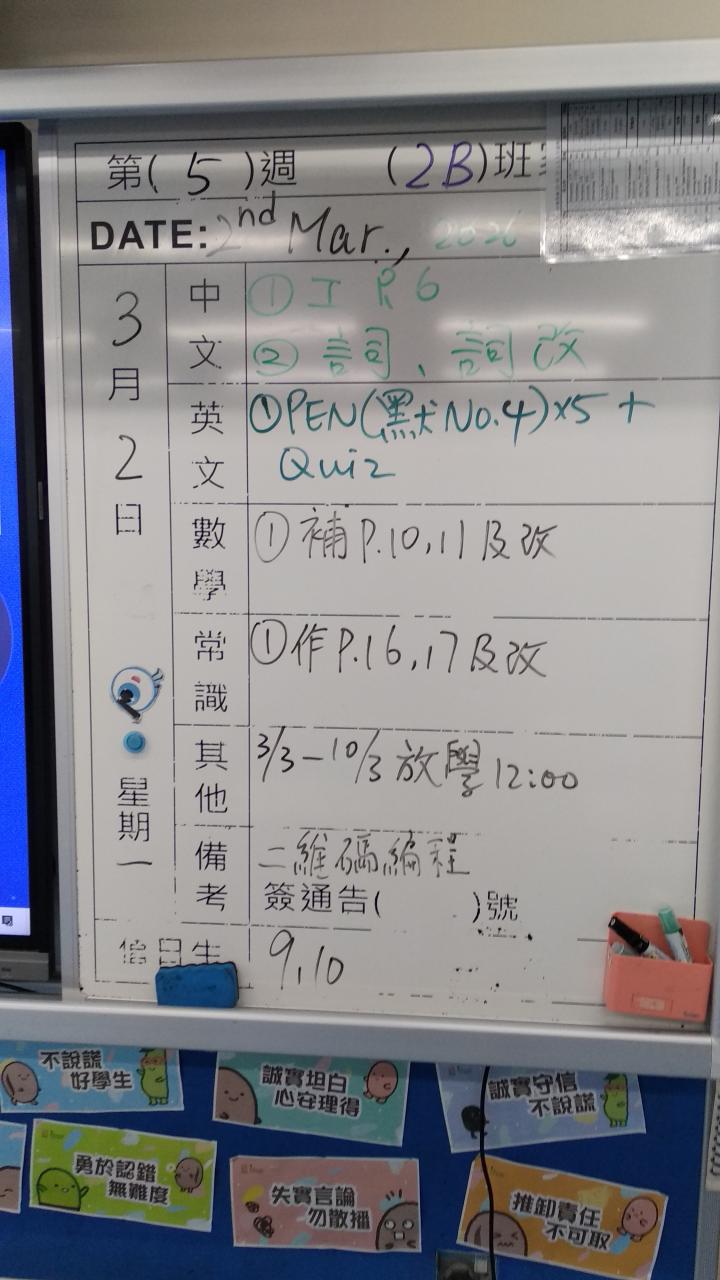 第( 5 )週 (2B)班
DATE: 2nd Mar., 2026
3月2日
星期一
中文
① 工 P. 6
② 詞、詞改
英文
① PEN(默 No.4)x5 +
Quiz
數學
① 補 P.10,11 及改
常識
① 作 P.16,17 及改
其他
3/3 - 10/3 放學 12:00
備考
二維碼編程
簽通告( )號
值日生
9,10
不說謊
好學生
誠實坦白
心安理得
誠實守信
不說謊
勇於認錯
無難度
失實言論
勿散播
推卸責任
不可取